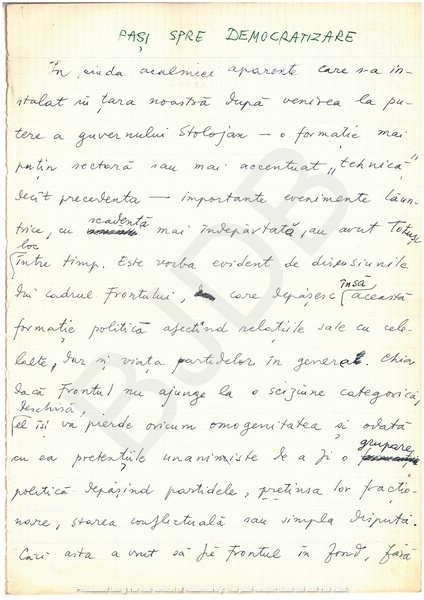 PAȘI SPRE DEMOCRATIZARE
În ciuda acalmiei aparente care s-a in-
stalat în țara noastră după venirea la pu-
tere a guvernului Stolojan — o formație mai
puțin sectară sau mai accentuat „tehnică"
decît precedenta — importante evenimente lăun-
trice, cu scadență mai îndepărtată, au avut totuși
loc
între timp. Este vorba evident de disensiunile
din cadrul Frontului, care depășesc însă această
formație politică afectînd relațiile sale cu cele-
lalte, dar și viața partidelor în general. Chiar
dacă Frontul nu ajunge la o sciziune categorică,
deschisă,
el își va pierde oricum omogenitatea și odată
cu ea pretențiile unanimiste de a fi o grupare
politică depășind partidele, pretinsa lor fracțio-
nare, starea conflictuală sau simpla dispută.
Căci asta a vrut să fie Frontul în fond, fără
BJDB